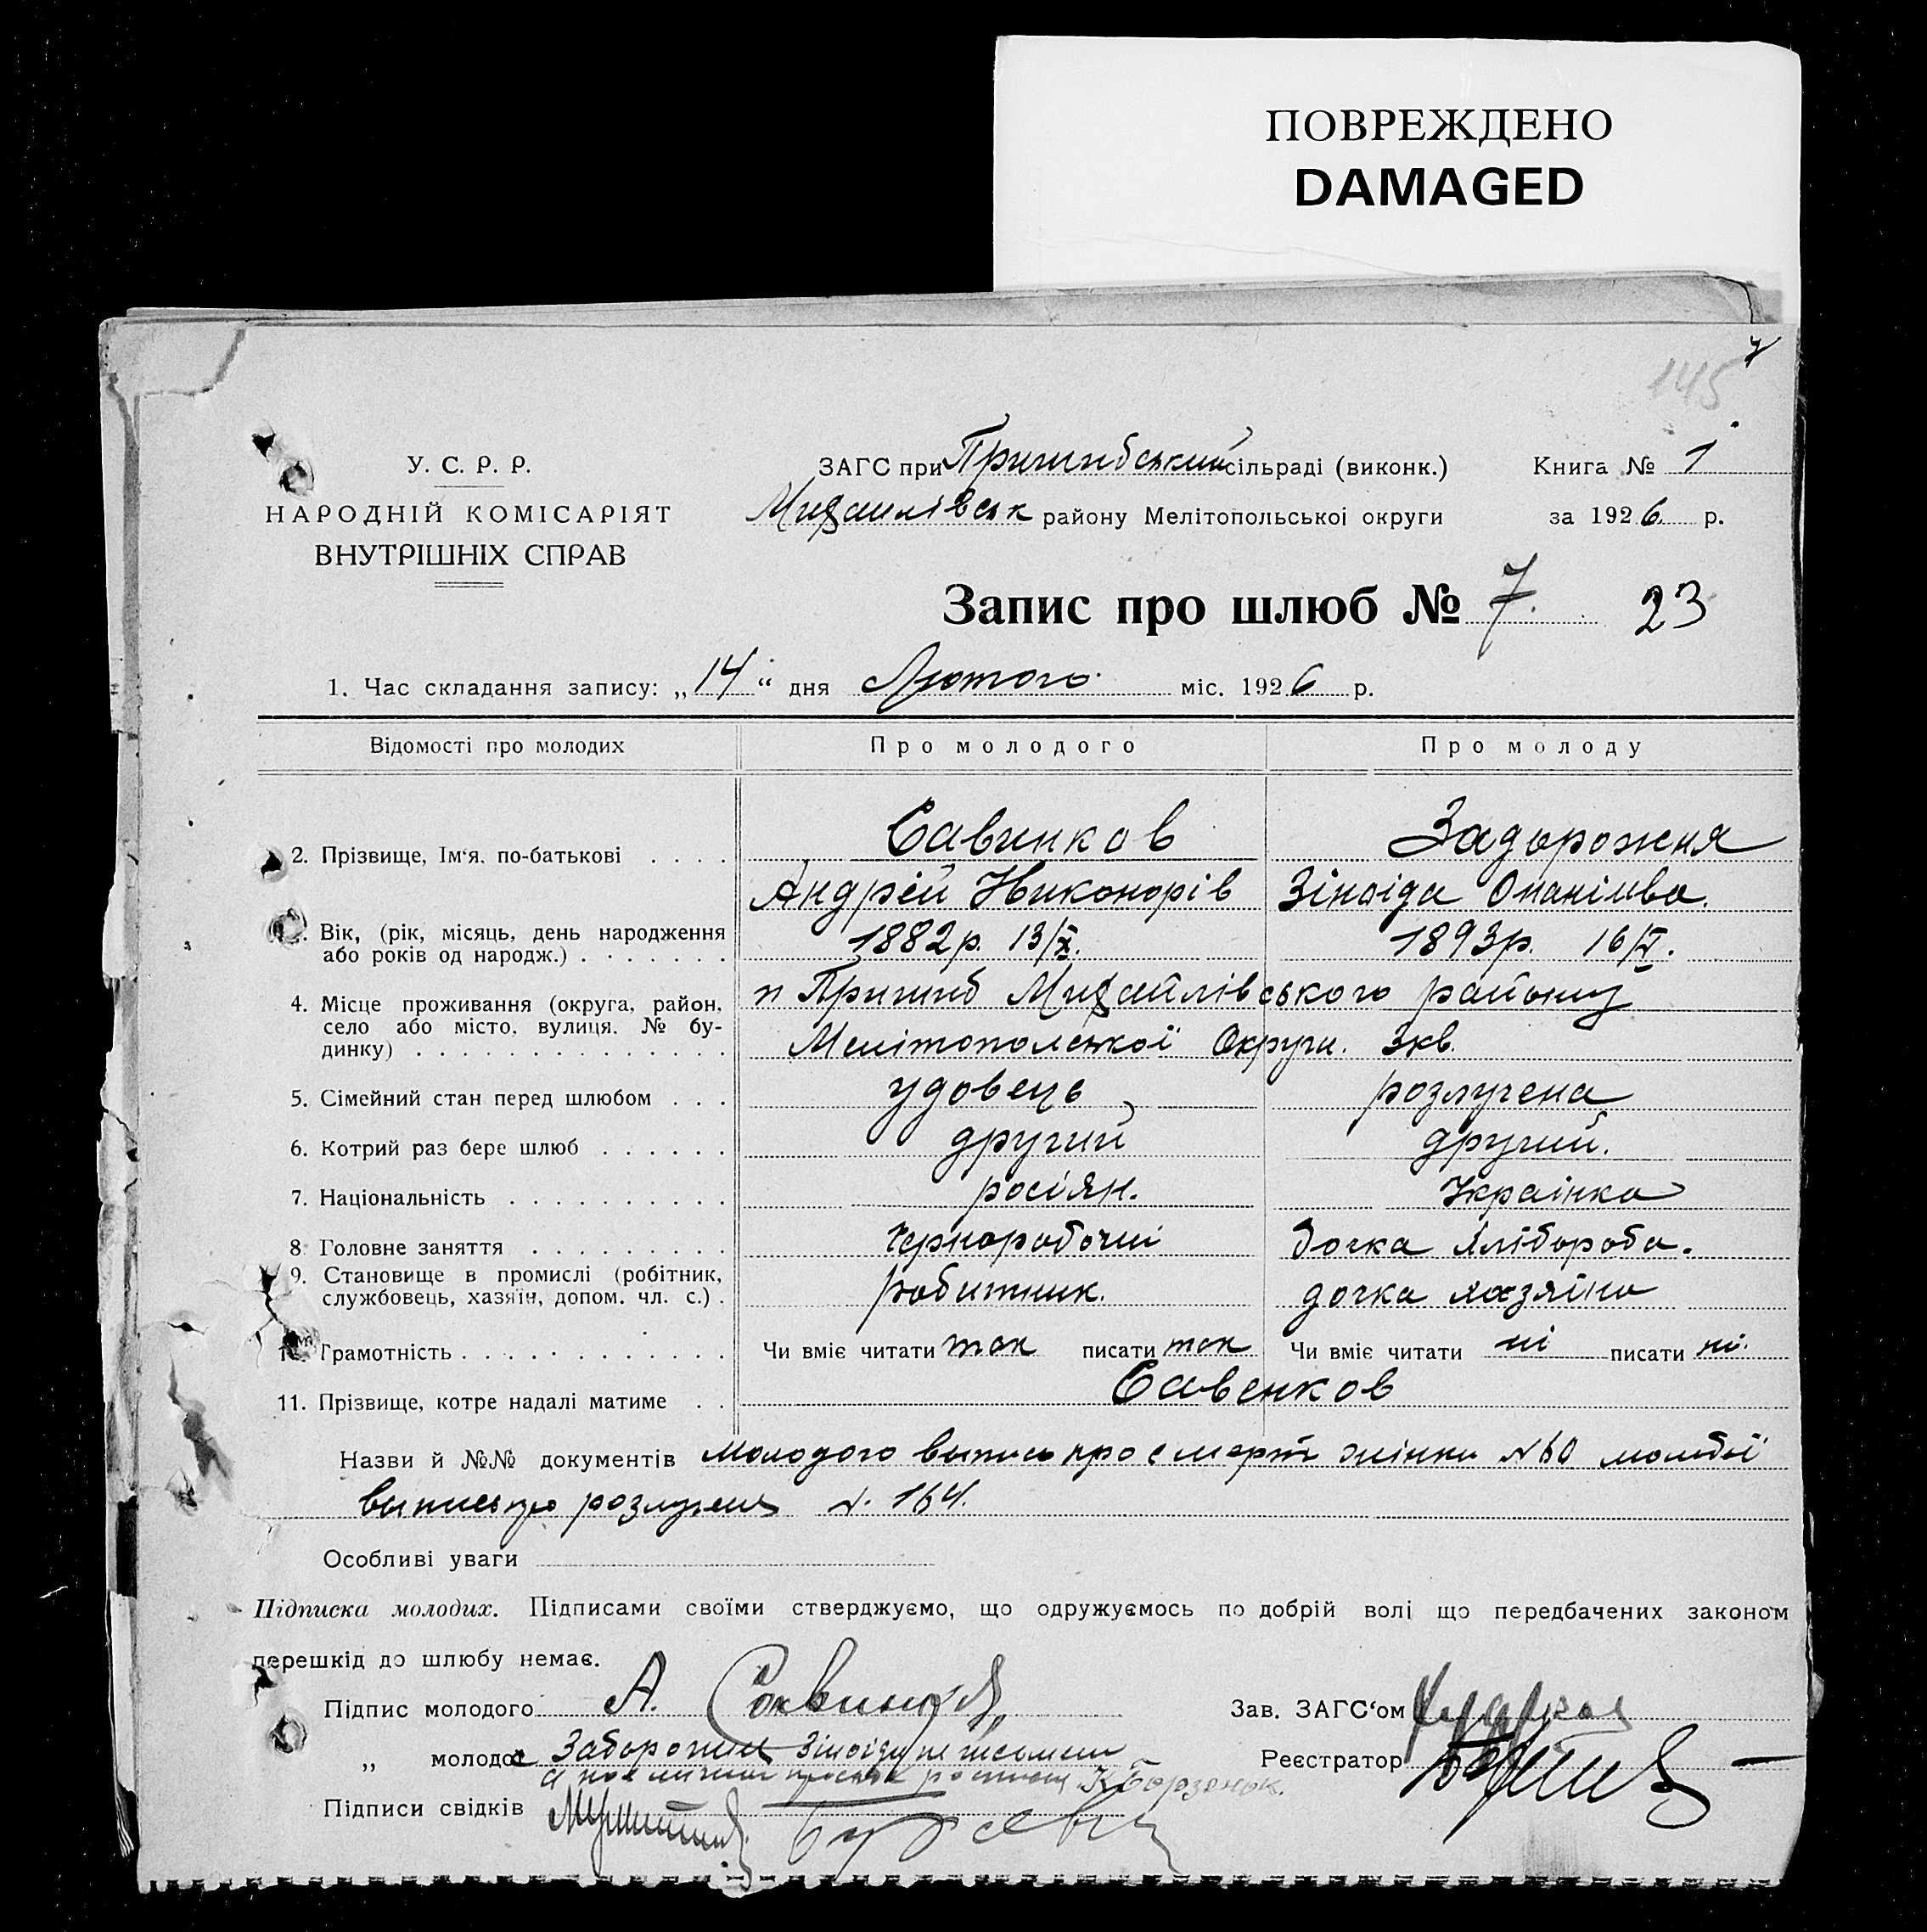 ПОВРЕЖДЕНО
DAMAGED
7
145
У. С. Р. Р.
НАРОДНІЙ КОМІСАРІЯТ
ВНУТРІШНІХ СПРАВ
ЗАГС при Пришибський сільраді (виконк.)
Михайлівськ району Мелітопольської округи
Книга № 1
за 1926 р.
Запис про шлюб № 7. 23
1. Час складання запису: „14“ дня Лютого міс. 1926 р.
Відомості про молодих Про молодого Про молоду
2. Прізвище, Ім‘я, по-батькові . . . . Савинков Задорожня
Андрій Никонорів Зіноіда
Вік, (рік, місяць, день народження
або років од народж.) . . . . . . . 1882р. 13/X. 1893р. 16/V.
4. Місце проживання (округа, район,
село або місто, вулиця, № бу-
динку) . . . . . . . . . . . . . .
п Пришиб Михайлівського району
Мелітопольскої Округи. 3кв.
5. Сімейний стан перед шлюбом . . . удовець розлучена
6. Котрий раз бере шлюб . . . . . . другий другий.
7. Національність . . . . . . . . . . росіян. Украінка
8. Головне заняття . . . . . . . . . Чорноробочий Дочка хлібороба.
9. Становище в промислі (робітник,
службовець, хазяїн, допом. чл. с.) . робитник. дочка хазяіна
Грамотність . . . . . . . . . . . . Чи вміє читати так писати так Чи вміє читати ні писати ні.
11. Прізвище, котре надалі матиме . . Савенков
Назви й №№ документів молодого выпись про смерть жінки №60 молодої
выпись про розлучень №. 164.
Особливі уваги
Підписка молодих. Підписами своїми стверджуємо, що одружуємось по добрій волі що передбачених законом
перешкід до шлюбу немає.
Підпис молодого А. Савинков
Зав. ЗАГС‘ом
„ молодої Зіноіда
Реєстратор
Підписи свідків